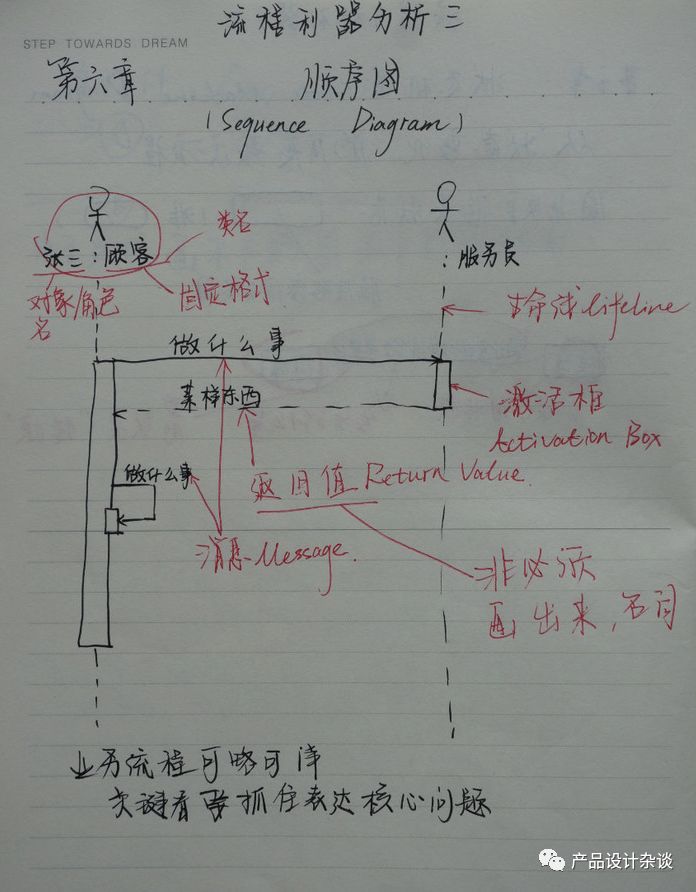 流程利器分析三
STEP TOWARDS DREAM
第六章 顺序图
(Sequence Diagram)
类名
张三:顾客
:服务员
对象/角色名
固定格式
生命线 lifeline
做什么事
某样东西
激活框
Activation Box
做什么事
返回值 Return Value.
消息 Message.
非必须
画出来,否则
业务流程可略可详
关键看要抓住表达核心问题
产品设计杂谈